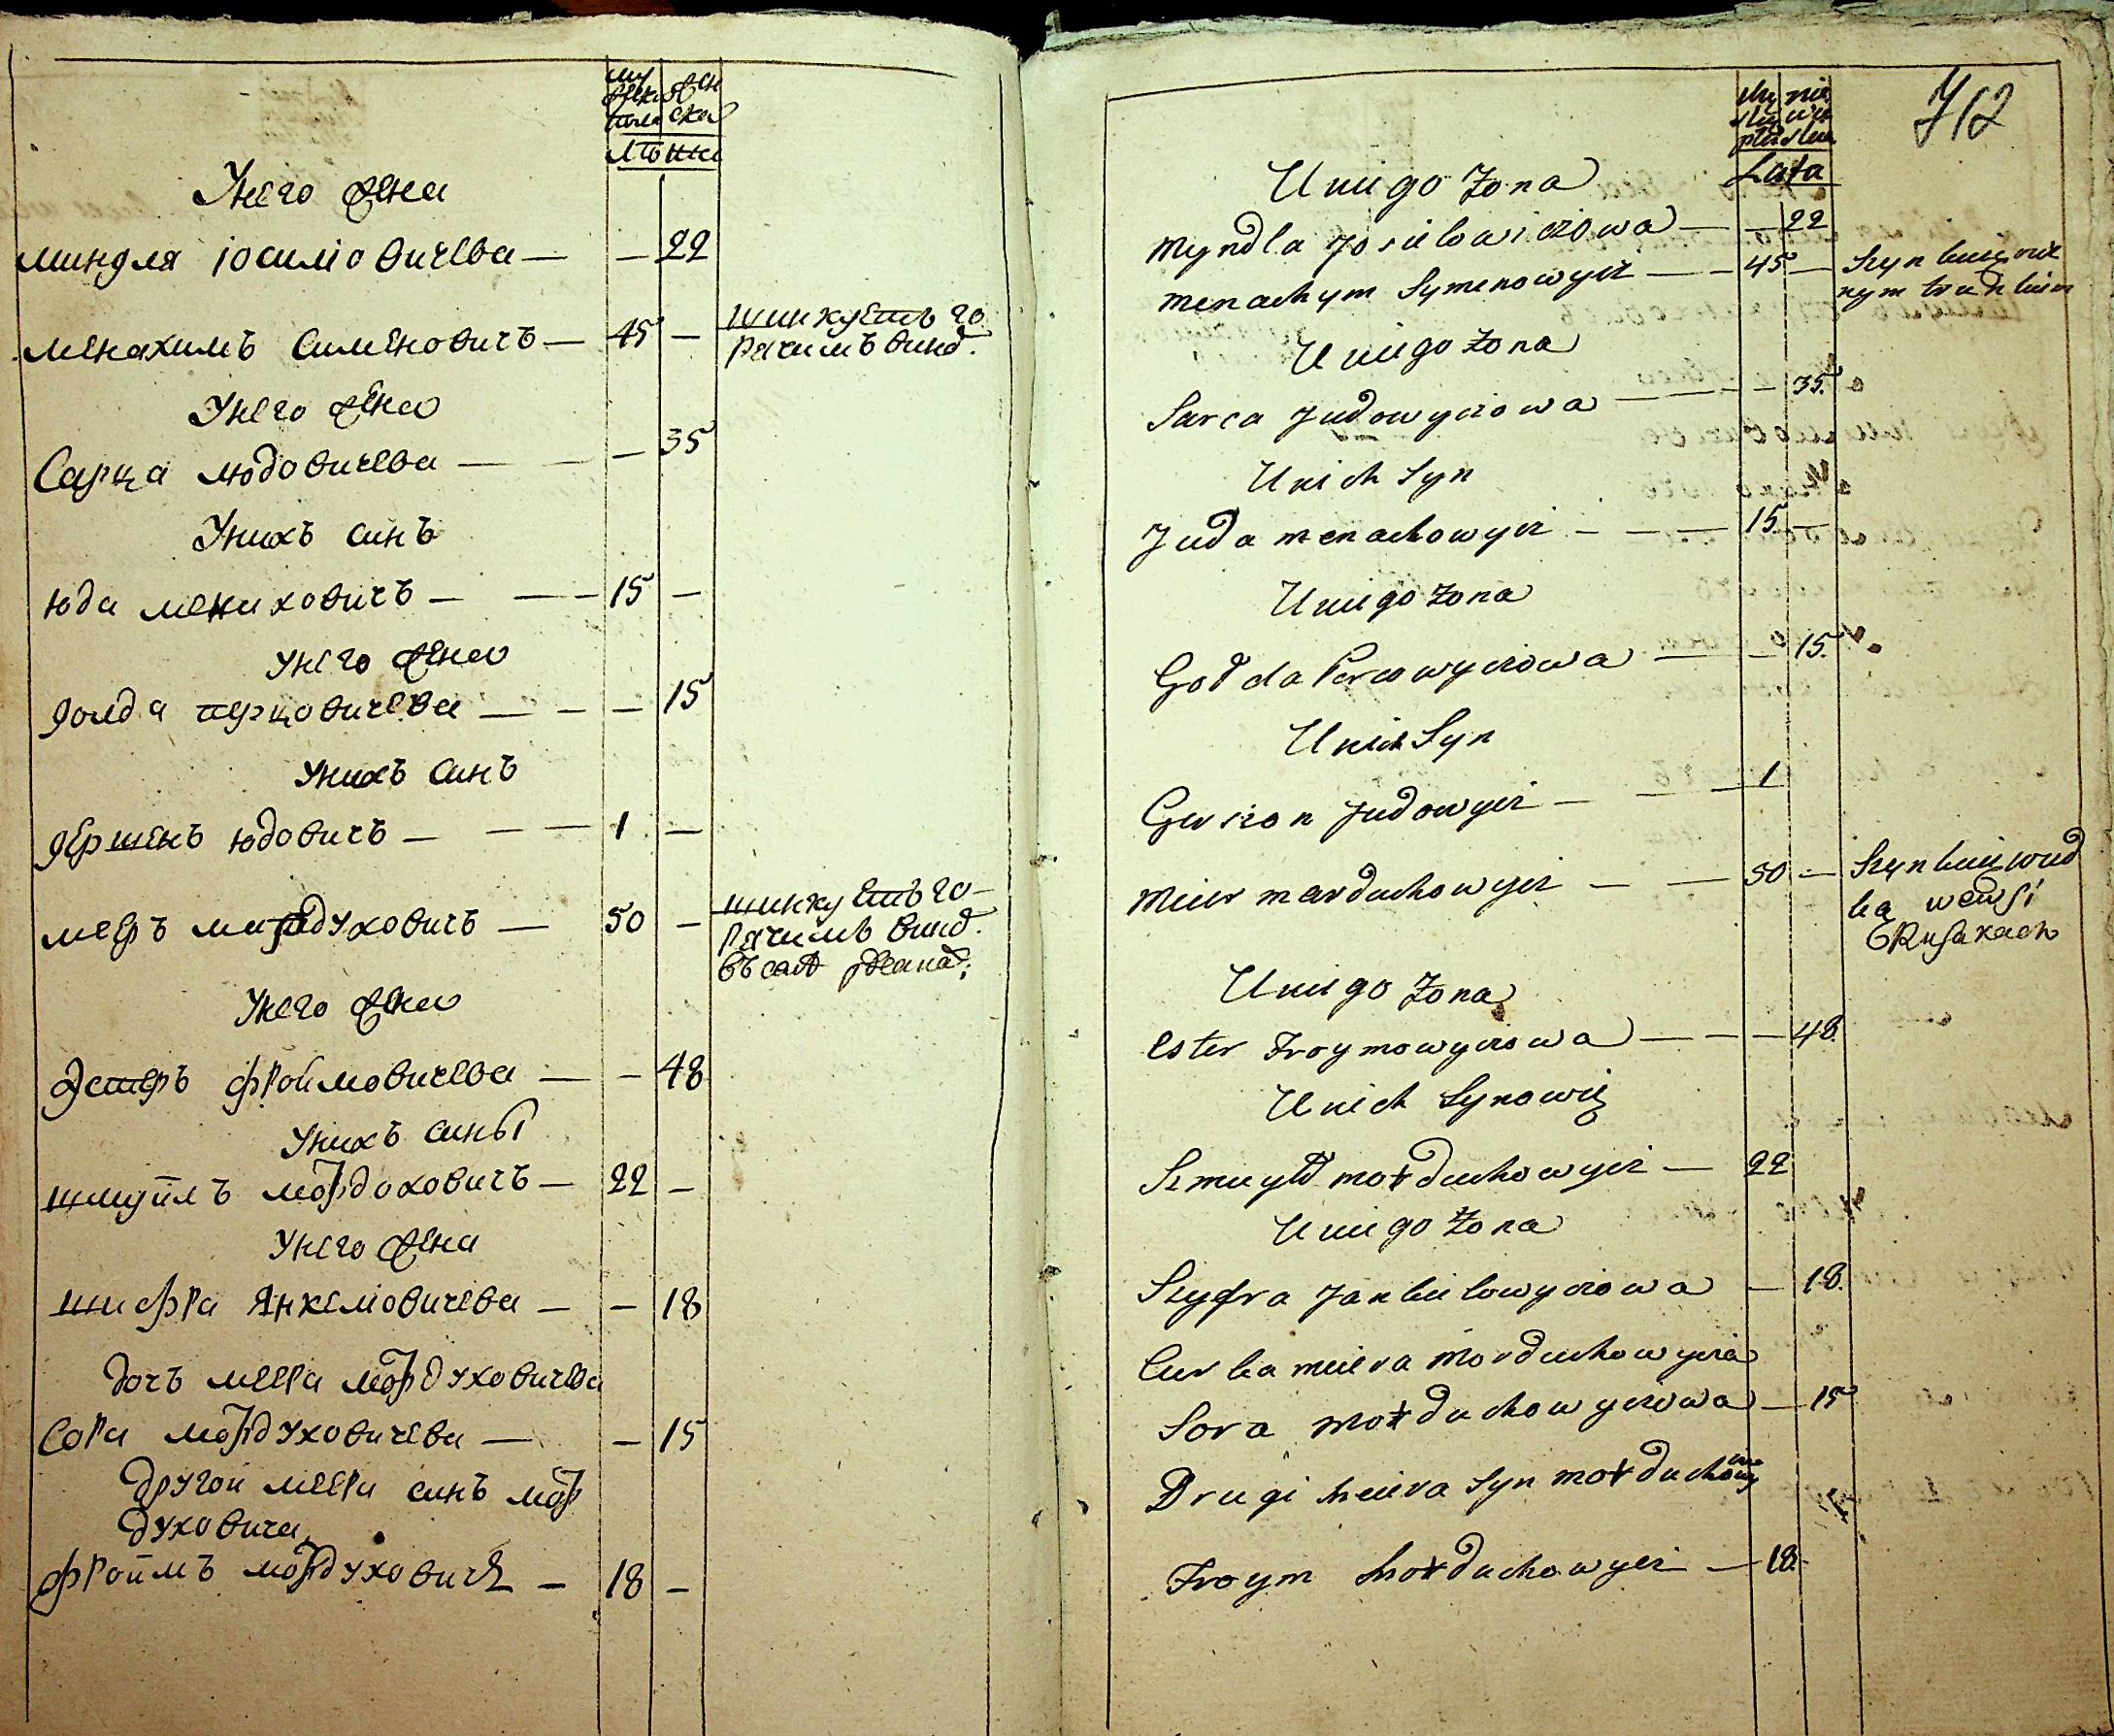 му
жеска
пола
жен
ска
лѣты
Унего жена
миндля іосиліовичева — — 22
менахимъ Сименовичъ — 45 —
шинкуетъ го
рячимъ вино.
Унего жена
Сарца юдовичева — — 35
Унихъ синъ
юда менаховичъ — — — 15 —
Унего жена
голда перцовичева — — — 15
Унихъ синъ
гершенъ юдовичъ — — — 1 —
мееръ мардуховичъ — 50 —
шинкуетъ го-
рячимъ вино.
въ селѣ
Унего жена
Эстеръ фроймовичева — — 48
Унихъ сины
шмуйлъ мордоховичъ — 22 —
Унего жена
шифра Янкеліовичева — — 18
дочъ меера мордуховичева
Сора мордуховичева — — 15
другой меера синъ мор
духовича
фроймъ мордуховичъ — 18 —
712
Lata
U niego Zona
Myndla Josielowiczowa — — 22
Menachym Symenowycz — — 45 —
Szynkuie
nym trunkiem
U niego Zona
Sarca Judowyczowa — — — 35.
U nich Syn
Juda menachowycz — — — 15 —
U niego Zona
Golda Percowyczowa — — 15.
U nich Syn
Gerszon Judowycz — — — 1
Meier marduchowycz — — 50 —
Szynkuie wud
ką we wsi
Rusakach
U niego Zona
Ester Froymowyczowa — — — 48.
U nich Synowie
Szmuyl morduchowycz — 22
U niego Zona
Szyfra Jankielowyczowa — 18.
Curka meiera Morduchowycza
Sora Morduchowyczowa — 15
Drugi Meiera Syn morduchowy
cza
Froym Morduchowycz — 18.